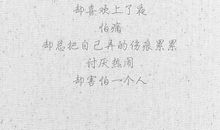 却喜欢上了夜
怕痛
却总把自己弄的伤痕累累
讨厌热闹
却害怕一个人